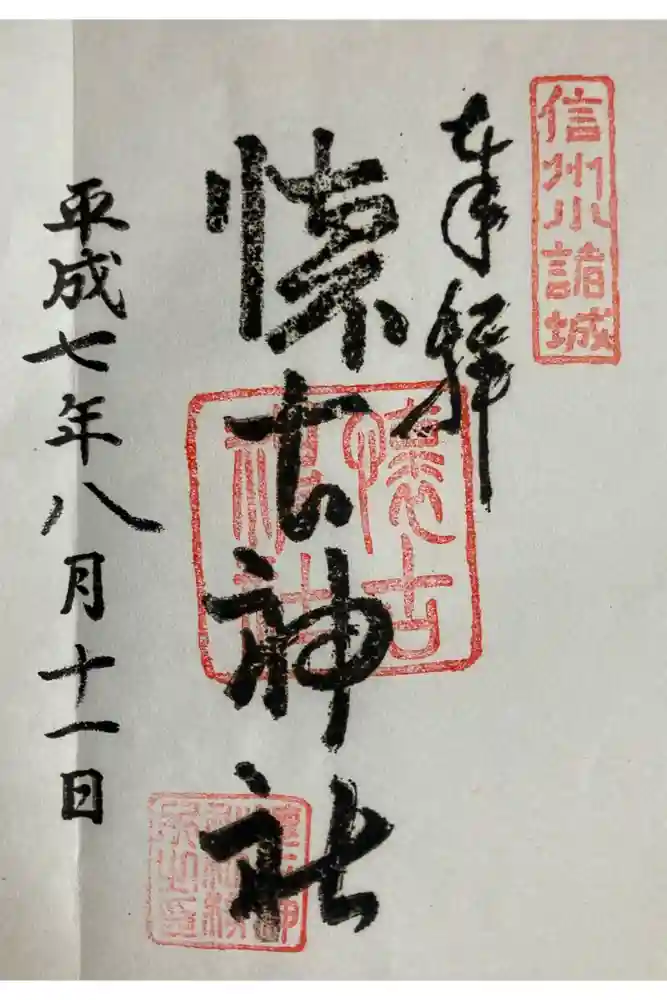 信州小諸城
奉拝
懐古神社
懐古神社
平成七年八月十一日